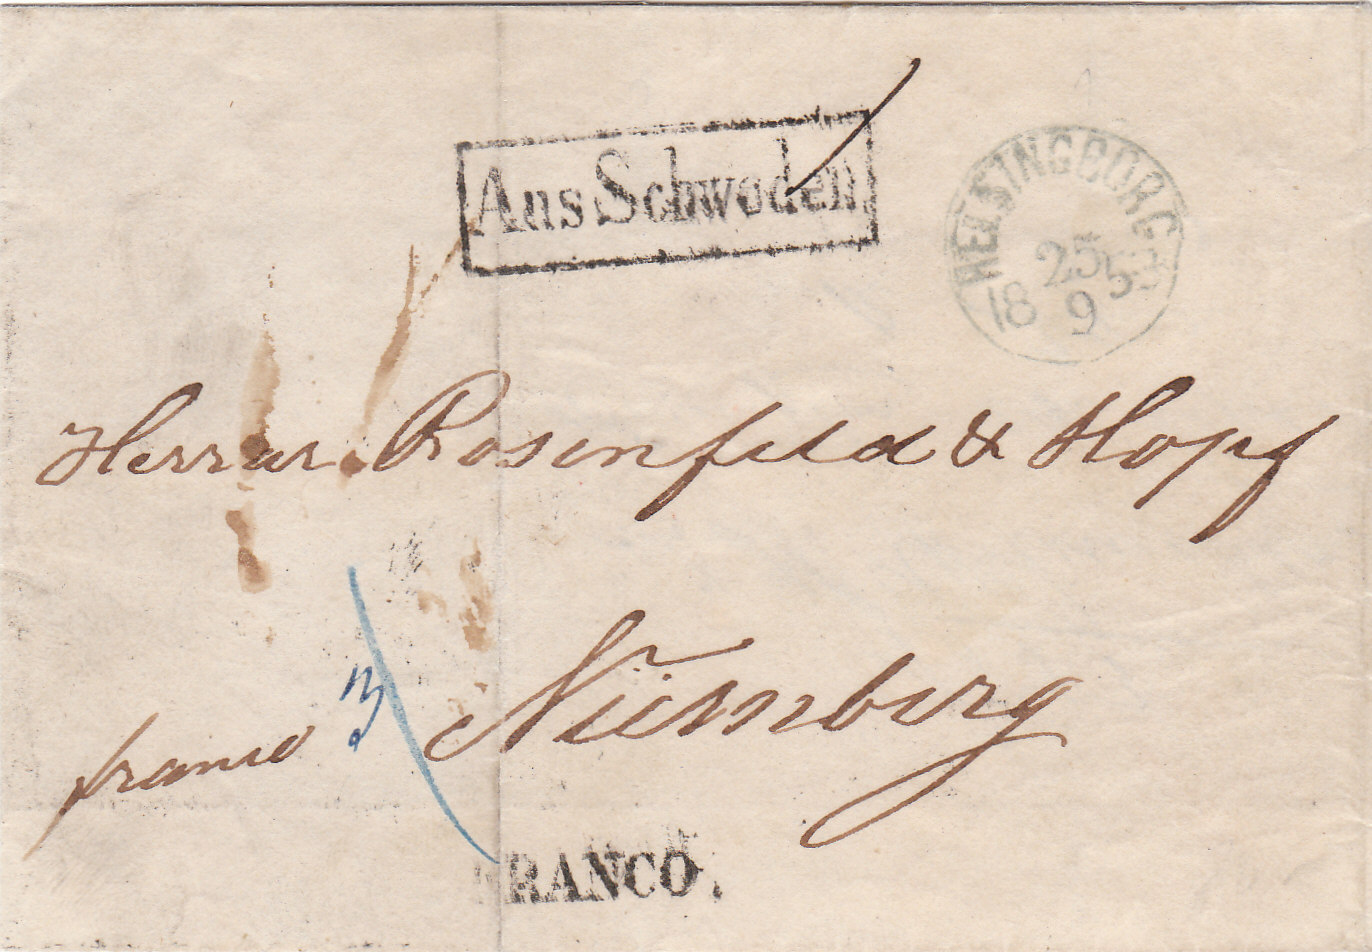 Aus Schweden
HELSINGBORG
25
18
9
Herren Rosenfeld & Hopf
Nürnberg
franco
3
FRANCO.